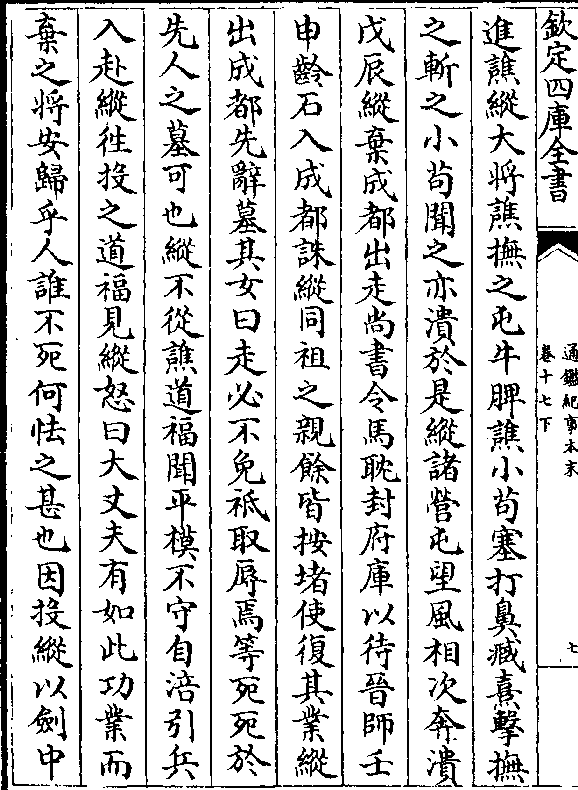 欽定四庫全書
通鑑紀事本末
卷十七下
七
進譙縱大將譙撫之屯牛脾譙小茍塞打鼻臧熹擊撫
之斬之小茍聞之亦潰於是縱諸營屯望風相次奔潰
戊辰縱棄成都出走尚書令馬耽封府庫以待晉師壬
申齡石入成都誅縱同祖之親餘皆按堵使復其業縱
出成都先辭墓其女曰走必不免祗取辱焉等死死於
先人之墓可也縱不從譙道福聞平模不守自涪引兵
入赴縱往投之道福見縱怒曰大丈夫有如此功業而
棄之將安歸乎人誰不死何怯之甚也因投縱以劍中